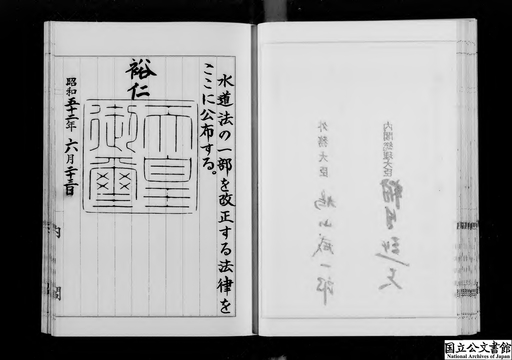 内閣総理大臣 福田赳夫
外務大臣 鳩山威一郎
水道法の一部を改正する法律を
ここに公布する。
裕仁
天皇
御璽
昭和五十二年六月二十三日
内閣
国立公文書館
National Archives of Japan